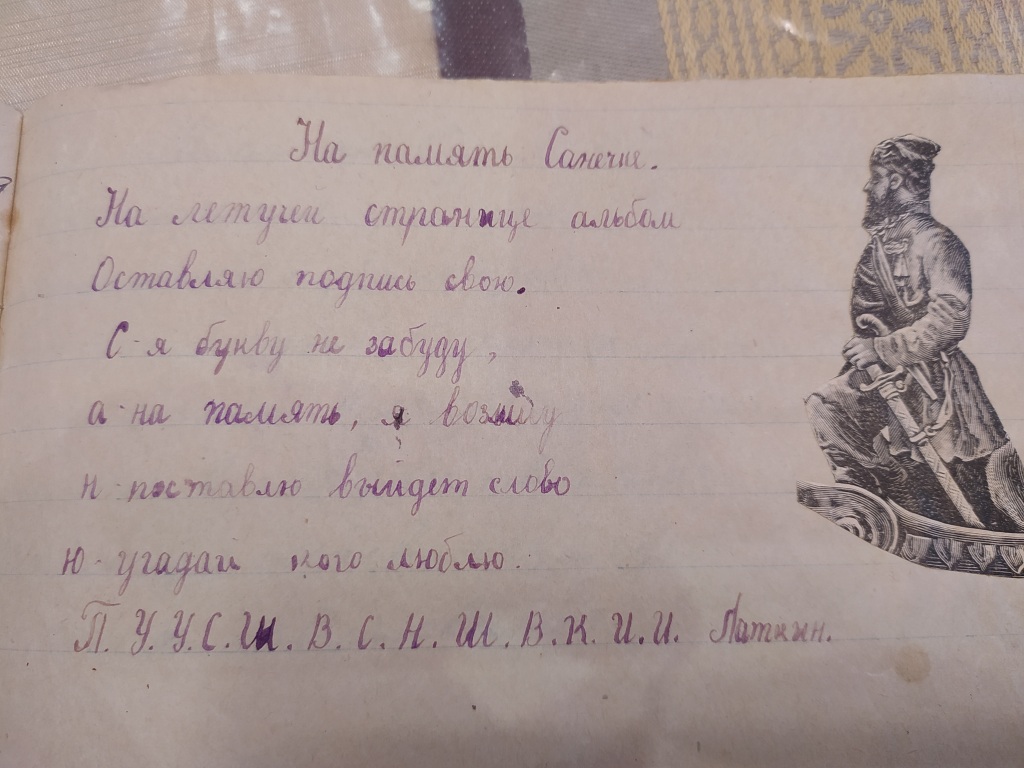 На память Санечке.
На летучеи странице альбом
Оставляю подпись свою.
С-я букву не забуду,
а-на память, я возьму
н-поставлю выйдет слово
ю-угадай кого люблю.
П. У. У. С. Ш. В. С. Н. Ш. В. К. И. И. Латкин.